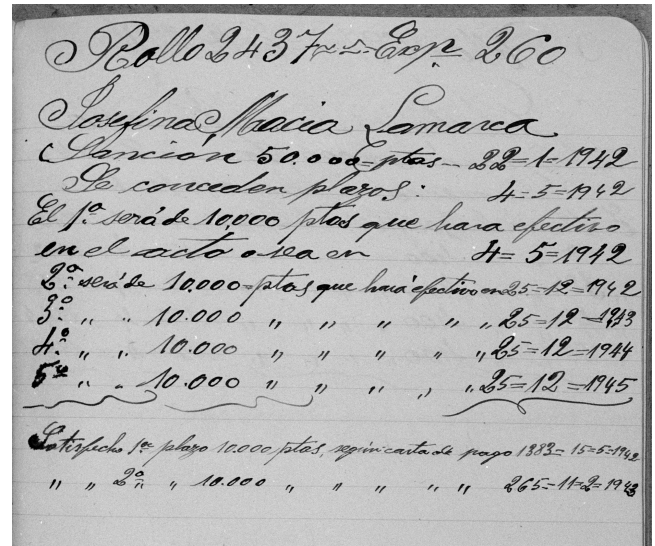 Rollo 2437 = Exp. 260
Josefina Macia Lamarca
Sanción 50.000= ptas — 22=1=1942
Se conceden plazos: 4=5=1942
El 1º será de 10,000 ptas que hara efectivo
en el acto o sea en 4=5=1942
2º será de 10.000=ptas que hará efectivo en 25=12=1942
3º " " 10.000 " " " " " " 25=12=1943
4º " " 10.000 " " " " " 25=12=1944
5º " " 10.000 " " " " " 25=12=1945
Satisfecho 1er plazo 10.000 ptas, según carta de pago 1383=15=5=1942
" " 2º " " 10.000 " " " " " 265=11=2=1943